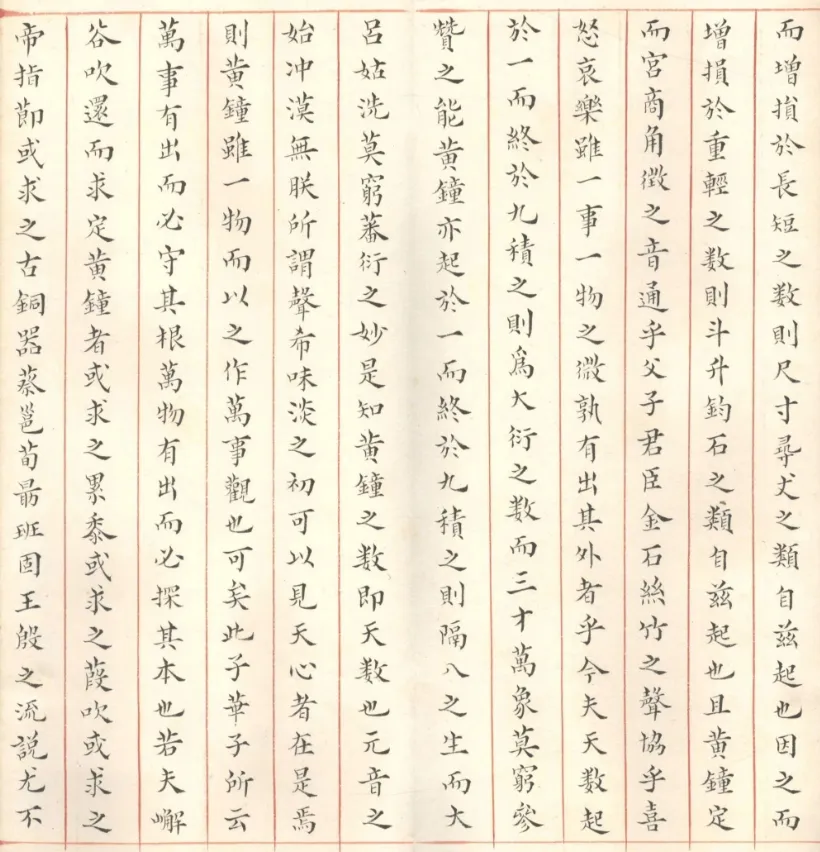 而增損於長短之数則尺寸尋丈之類自茲起也因之而
增損於重輕之数則斗升鈞石之類自茲起也且黄鐘定
而宮商角徵之音通乎父子君臣金石絲竹之聲協乎喜
怒哀樂雖一事一物之微孰有出其外者乎今夫天数起
於一而終於九積之則爲大衍之数而三才萬象莫窮參
贊之能黄鐘亦起於一而終於九積之則隔八之生而大
呂姑洗莫窮蕃衍之妙是知黄鐘之数即天数也元音之
始冲漠無朕所謂聲希味淡之初可以見天心者在是焉
則黄鐘雖一物而以之作萬事觀也可矣此子華子所云
萬事有出而必守其根萬物有出而必探其本也若夫嶰
谷吹還而求定黄鐘者或求之累黍或求之葭吹或求之
帝指節或求之古銅器蔡邕荀勗班固王殷之流説尤不